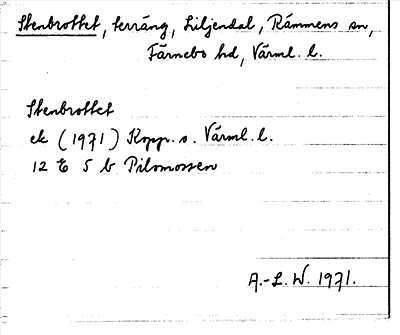 Stenbrottet, terräng, Liljendal, Rämmens sn,
Färnebo hd, Värml. l.
Stenbrottet
ek (1971) Kopp. o. Värml. l.
12 E 5 b Pilomossen
A.-L. W. 1971.